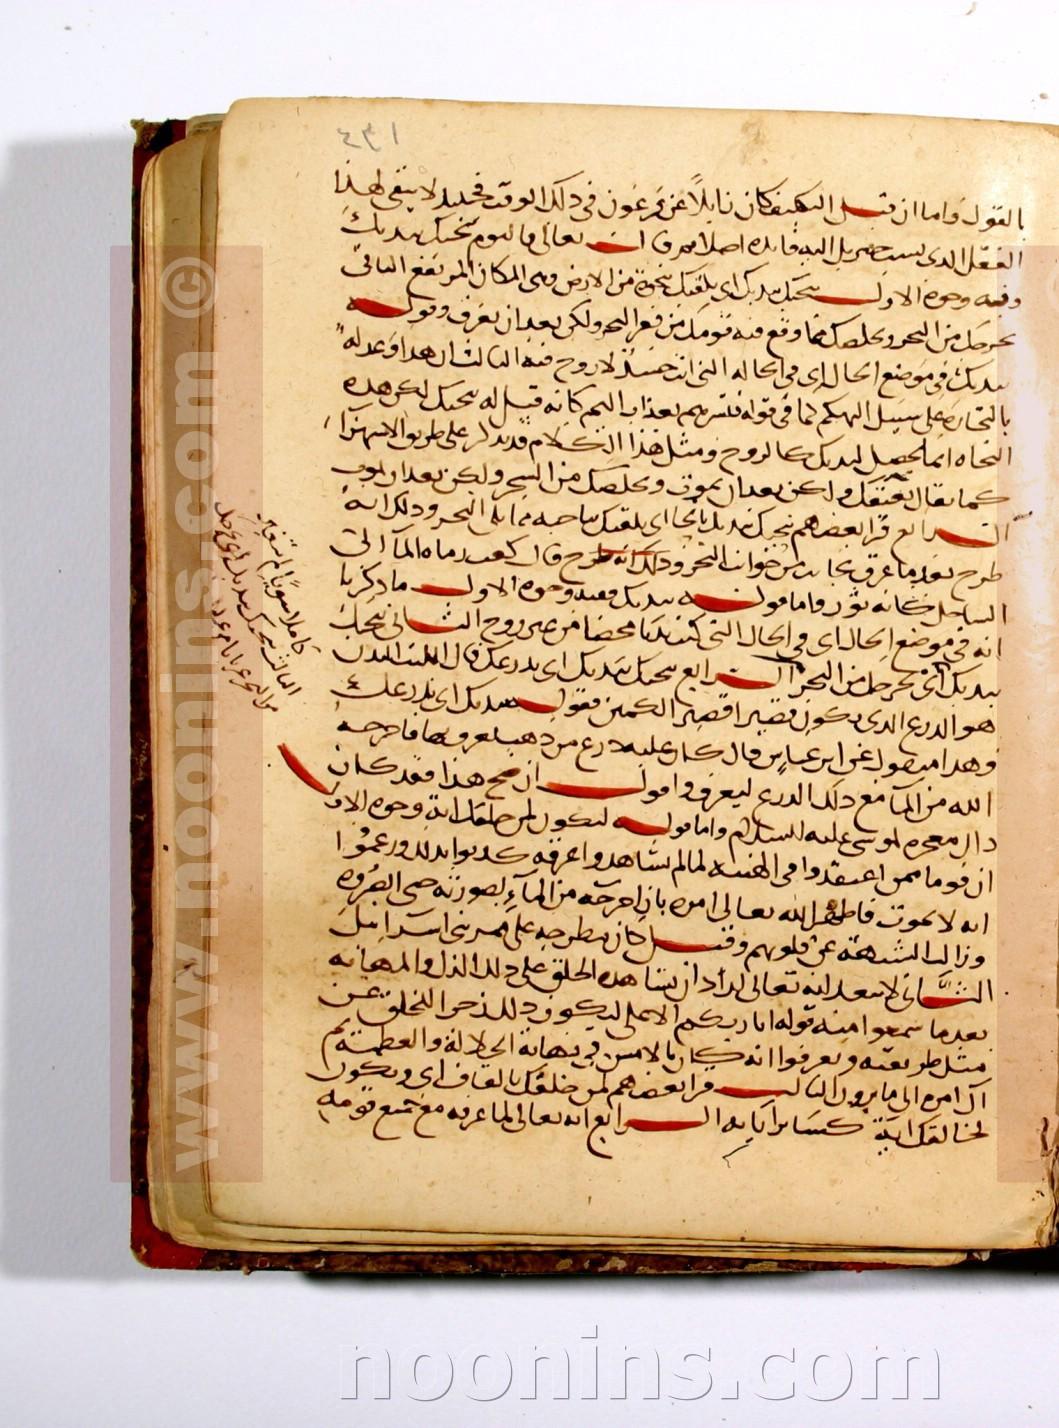 ٤٣١
بالقول واما ان قيل التكليف كان زايلا عن فرعون في ذلك الوقت فحينئذ لا يبقى لهذا
الفعل الذي نسب جبريل اليه فايدة اصلا ثم قال تعالى فاليوم ننجيك ببدنك
وفيه وجوه الاول ننجيك ببدنك اي نلقيك بنجوة من الارض وهي المكان المرتفع الثاني
نخرجك من البحر ونخلصك مما وقع فيه قومك من قعر البحر ولكن بعد ان تغرق وقوله
ببدنك في موضع الحال اي في الحال التي انت حينئذ لا روح فيه الثالث ان هذا وعد له
بالنجاة على سبيل التهكم كما في قوله فبشرهم بعذاب اليم كانه قيل له ننجيك لكن هذه
النجاة انما تحصل لبدنك لا لروحك ومثل هذا الكلام قد يذكر على طريق الاستهزاء
كما يقال نعتقك ولكن بعد ان تموت ونخلصك من السجن ولكن بعد ان تموت
الرابع قرا بعضهم ننحيك بالحا اي نلقيك بناحية مما يلي البحر وذلك انه
طرح بعد ما غرق بجانب من جوانب البحر وذلك انه طرح قال كعب رماه الما الى
الساحل كانه ثور واما قوله ببدنك ففيه وجوه الاول ما ذكرنا
انه في موضع الحال اي في الحال التي كنت بدنا محضا من غير روح الثاني ننجيك
ببدنك اي نخرجك من البحر الرابع ننجيك ببدنك اي بدرعك قال الليث البدن
هو الدرع الذي يكون قصيرا قصير الكمين فقوله ببدنك اي بدرعك
وهذا منقول عن ابن عباس قال كان عليه درع من ذهب يعرف بها فاخرجه
الله من الما مع ذلك الدرع ليعرف واقول ان صح هذا فقد كان
ذلك معجزة لموسى عليه السلام واما قوله لتكون لمن خلفك اية وجوه الاول
ان قوما ممن اعتقدوا في الهيته لما لم يشاهدوا غرقه كذبوا بذلك وزعموا
انه لا يموت فاظهر الله تعالى امره بان اخرجه من الماء بصورته حتى ابصروه
وزالت الشبهة عن قلوبهم وقيل كان مطرحه على ممر بني اسرايل
الثاني لا يبعد انه تعالى اراد ان يشاهده الخلق على ذلك الذل والمهانة
بعد ما سمعوا منه قوله انا ربكم الاعلى ليكون ذلك زجرا للخلق عن
مثل طريقته ويعرفوا انه كان بالامس في نهاية الجلالة والعظمة ثم
آل امره الى ما يرون الثالث قرا بعضهم لمن خلقك بالقاف اي وتكون
لخالقك اية كساير آياته الرابع انه تعالى لما غرقه مع جميع قومه
كاملا سويا لم تتغير
الثالث ننجيك ببدنك اي نخرجك
من البحر عريانا
www.noonins.com ©
noonins.com